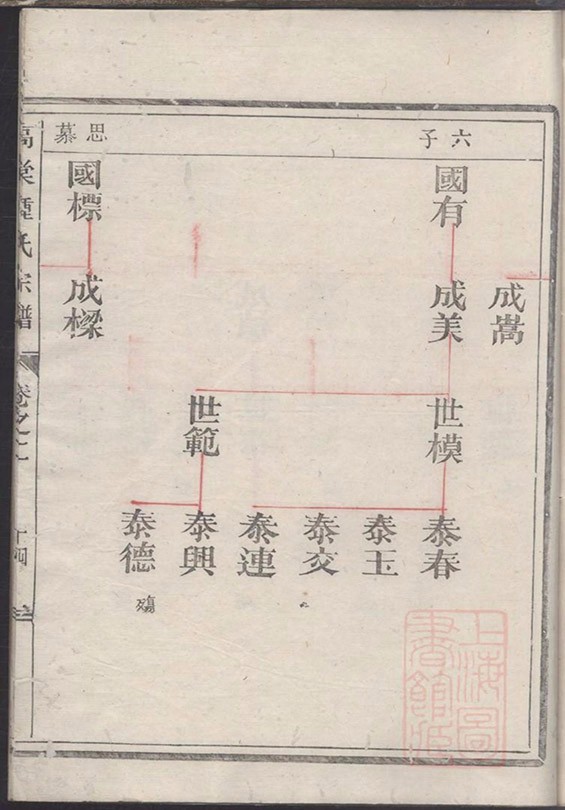 六子
思慕
成嵩
國有
成美
世模
泰春
泰玉
泰交
泰連
世範
泰興
泰德
殤
國標
成樑
鍾氏宗譜
卷之二
十四
上海圖書館藏